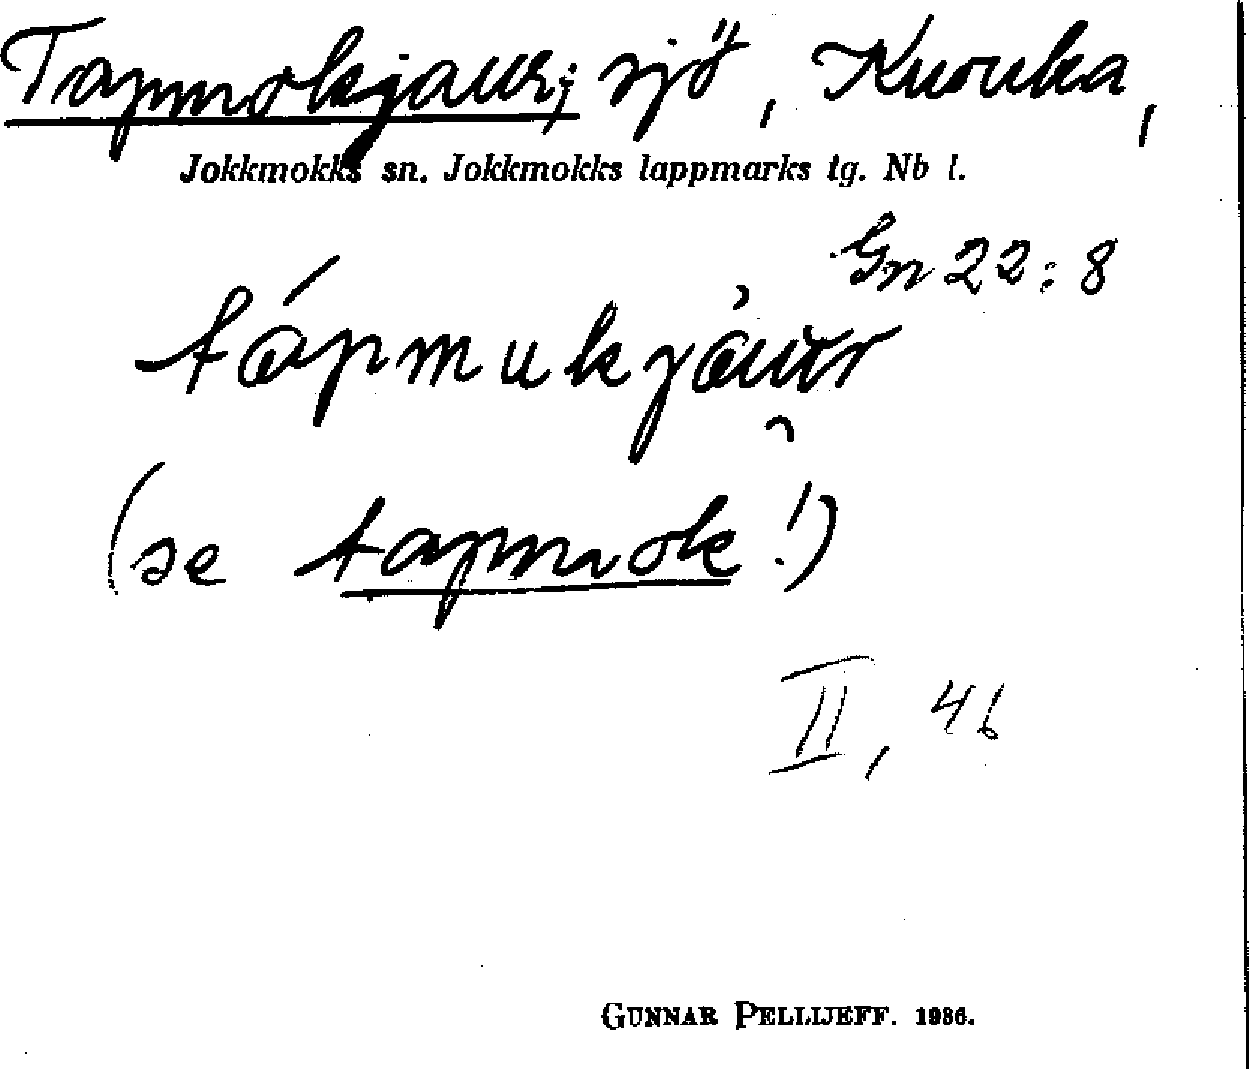 Tapmokjaur; sjö, Kuouka,
Jokkmokks sn. Jokkmokks lappmarks tg. Nb l.
Gn 22:8
tápmukjáur
(se tapmok!)
II, 46
GUNNAR PELLIJEFF. 1986.